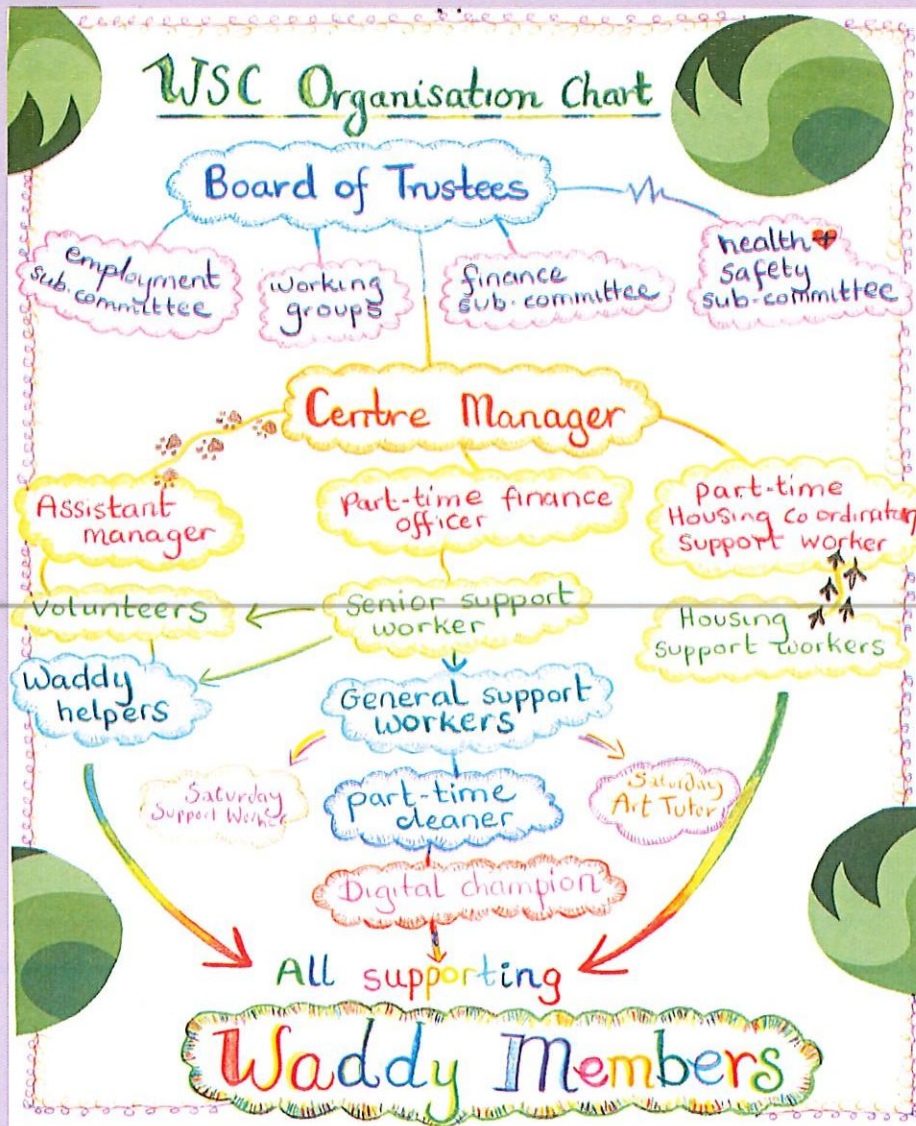 WSC Organisation Chart
Board of Trustees
employment
sub.committee
working
groups
finance
sub-committee
health +
safety
sub-committee
Centre Manager
Assistant
manager
Part-time finance
officer
part-time
Housing Co ordinator
support worker
Volunteers
Senior support
worker
Housing
support workers
Waddy
helpers
General support
workers
Saturday
Support Worker
part-time
cleaner
Saturday
Art Tutor
Digital champion
All supporting
Waddy Members